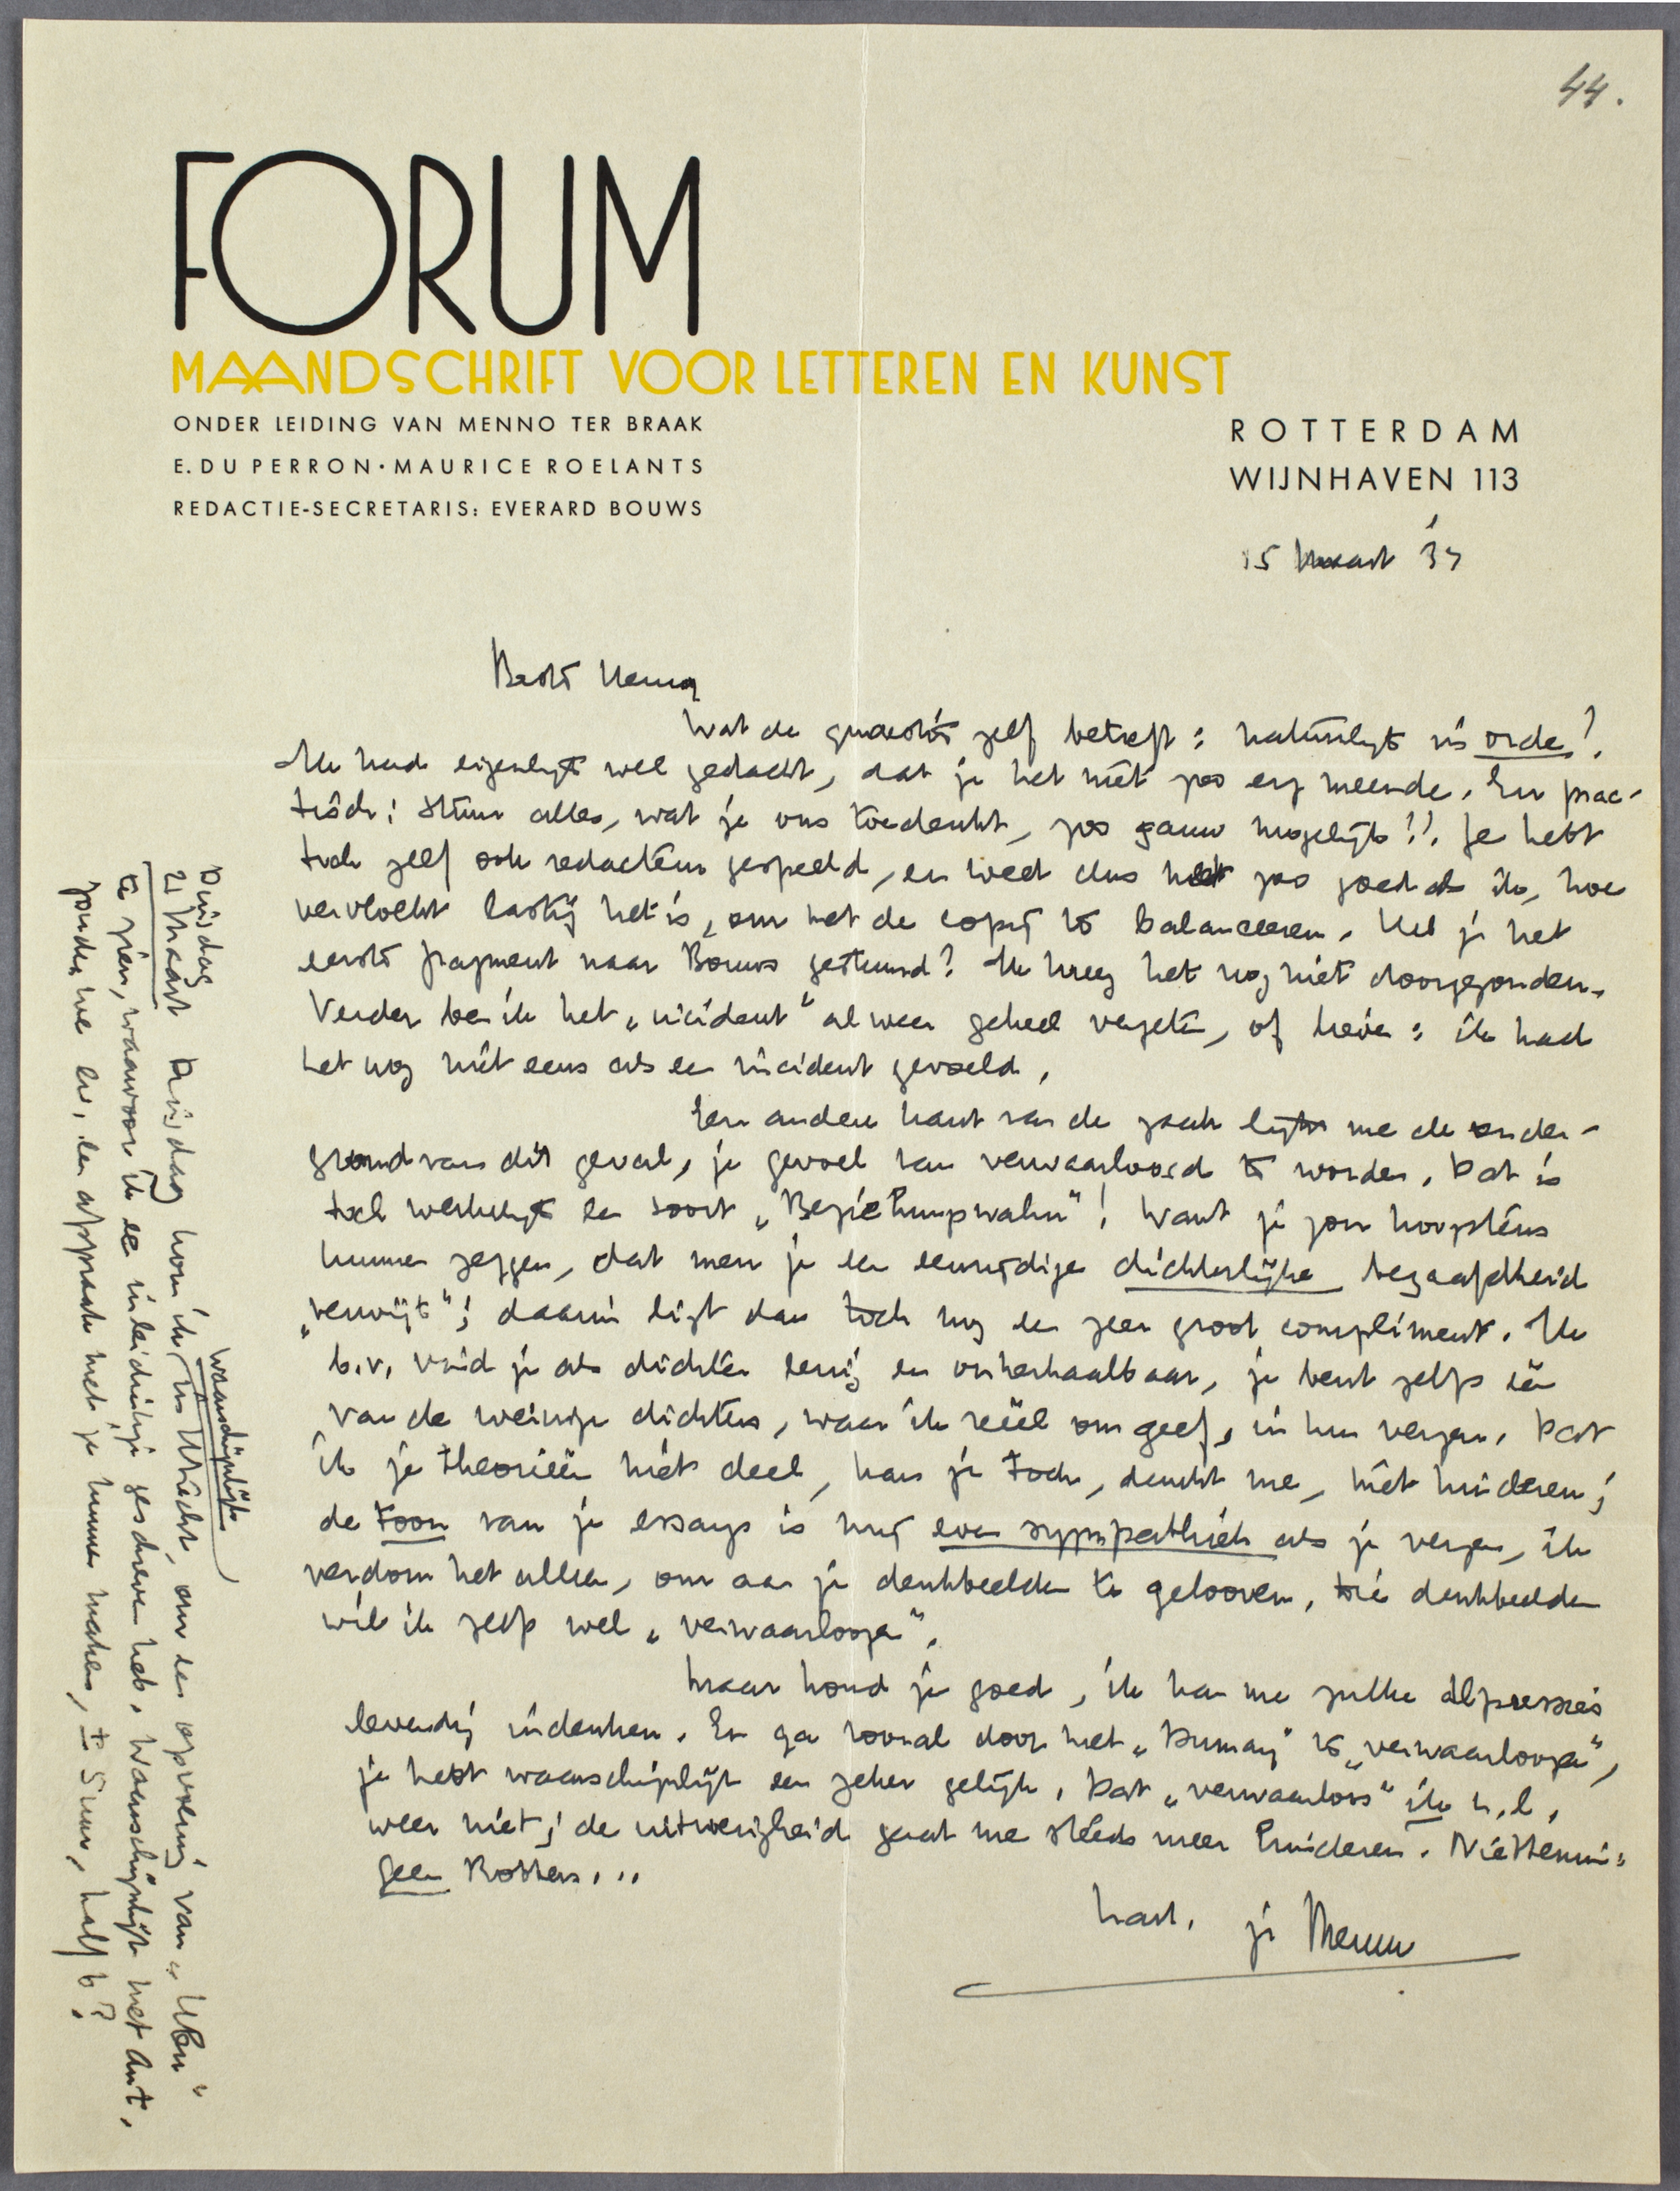 44.
FORUM
MAANDSCHRIFT VOOR LETTEREN EN KUNST
ONDER LEIDING VAN MENNO TER BRAAK
E. DU PERRON · MAURICE ROELANTS
REDACTIE-SECRETARIS: EVERARD BOUWS
ROTTERDAM
WIJNHAVEN 113
15 Maart '33
Beste Henny
Wat de quaestie zelf betreft: natuurlijk in orde!
Ik had eigenlijk wel gedacht, dat je het niet zoo erg meende. En prac-
tisch: stuur alles, wat je ons toedenkt, zoo gauw mogelijk!! Je hebt
toch zelf ook redacteur gespeeld, en weet dus net zoo goed als ik, hoe
vervloekt lastig het is, om met de copij te balanceeren. Heb je het
eerste fragment naar Bouws gestuurd? Ik kreeg het nog niet doorgezonden.
Verder ben ik het „incident" alweer geheel vergeten, of liever: ik had
het nog niet eens als een incident gevoeld.
Een andere kant van de zaak lijkt me de onder-
grond van dit geval, je gevoel van verwaarloosd te worden. Dat is
toch werkelijk een soort „Beziehungswahn"! Want je zou hoogstens
kunnen zeggen, dat men je een eenzijdige dichterlijke begaafdheid
„verwijt"; daarin ligt dan toch nog een zeer groot compliment. Ik
b.v. vind je als dichter eenig en onherhaalbaar, je bent zelfs één
van de weinige dichters, waar ik reëel om geef, in hun verzen. Dat
ik je theorieën niet deel, kan je toch, dunkt me, niet hinderen;
de toon van je essays is mij even sympathiek als je verzen, ik
verdom het alleen, om aan je denkbeelden te gelooven. Die denkbeelden
wil ik zelfs wel „verwaarloozen".
Maar houd je goed, ik kan me zulke depressies
levendig indenken. En ga vooral door met „Dumay" te „verwaarloozen",
je hebt waarschijnlijk een zeker gelijk. Dat „verwaarloos" ik n.l.
weer niet; de uitwerigheid gaat me steeds meer hinderen. Niettemin:
geen Rotters...
hart. je Menno
Dinsdag
21 Maart Dinsdag kom ik waarschijnlijk in Utrecht, om een opvoering van „Uken"
te zien, waarvoor ik een inleidinkje geschreven heb. Waarschijnlijk met Ant.
Zouden we er een afspraak met je kunnen maken, ± 5 uur, half 6?